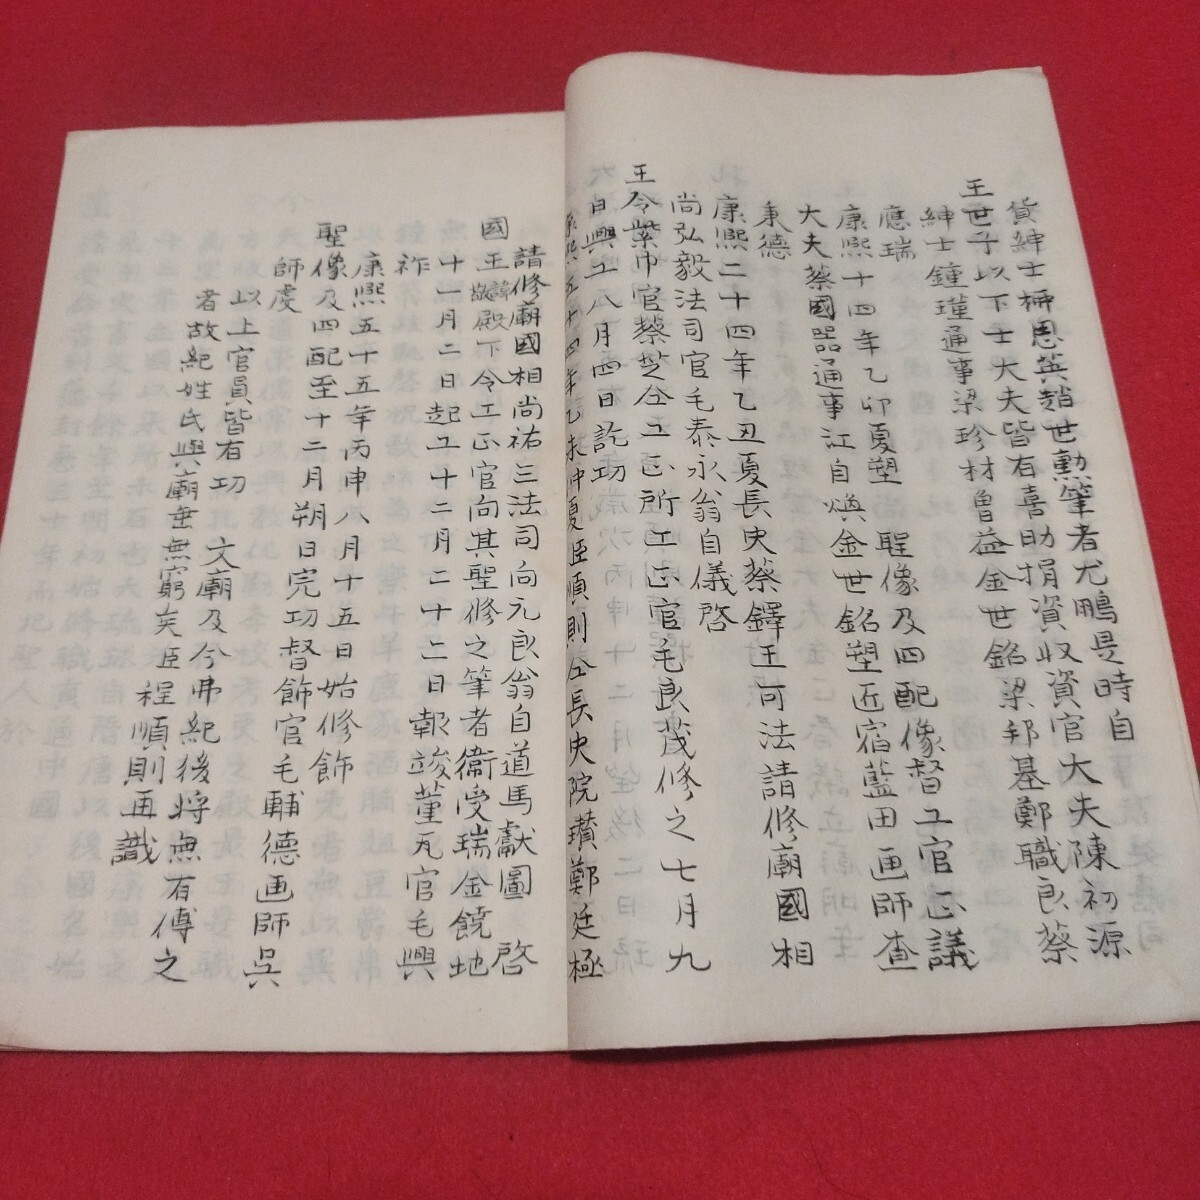 貨紳士楊思英趙世勲筆者尤鵬是時自
王世子以下士大夫皆有喜助捐資収資官大夫陳初源
紳士鐘瑾通事梁珍材魯益金世銘梁邦基鄭職良蔡
應瑞
康熙十四年乙卯夏塑 聖像及四配像督工官正議
大夫蔡國器通事江自煥金世銘塑近宿藍田画師查
秉德
康熙二十四年乙丑夏長史蔡鐸王可法請修廟國相
尚弘毅法司官毛泰永翁自儀啓
王令紫巾官蔡芝仝工正所工正官毛良茂修之七月九
日興工八月四日訖功
康熙五十四年乙未仲夏臣順則仝長史院瓚鄭廷極
請修廟國相尚祐三法司向元良翁自道馬獻圖 啓
國王諱敬殿下令工正官向其聖修之筆者衞受瑞金饒地
十一月二日起工十二月二十二日報竣董瓦官毛興
祚
康熙五十五年丙申八月十五日始修飾
聖像及四配至十二月朔日完功督飾官毛輔德画師吳
師虔
以上官員皆有功 文廟及今弗紀後將無有傳之
者故紀姓氏與廟垂無窮矣臣程順則再識